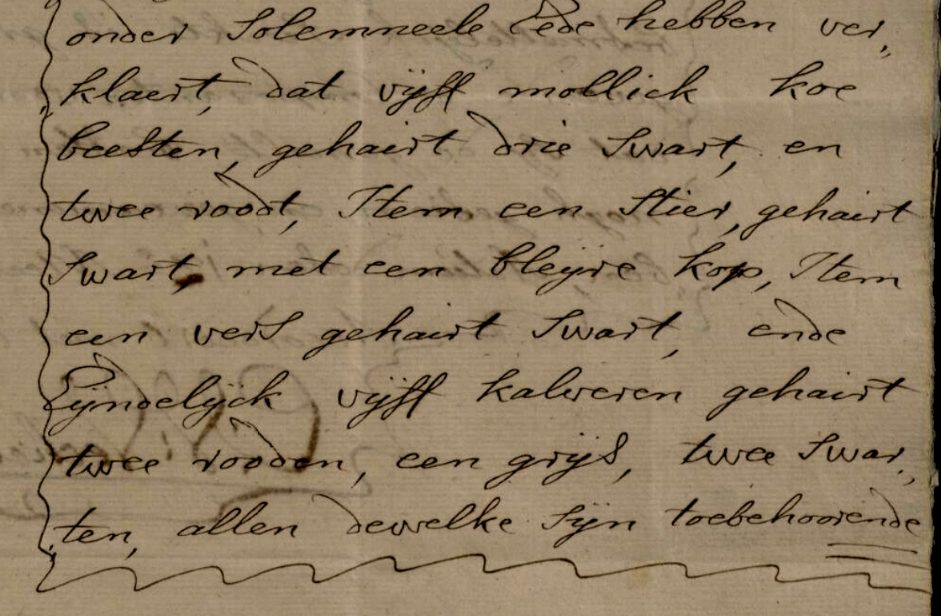 onder Solemneele Eede hebben ver„
klaert, dat vijff mollick koe
beesten, gehairt drie Swart, en
tweeroodt, Item een Stier, gehairt
Swart, met een bleyre kop, Item
een vers gehairt Swart, ende
Eijndelijck vijff kalveren gehairt
twee rooden, een grijs, twee Swar„
„ten, allen dewelke Sijn toebehoorende